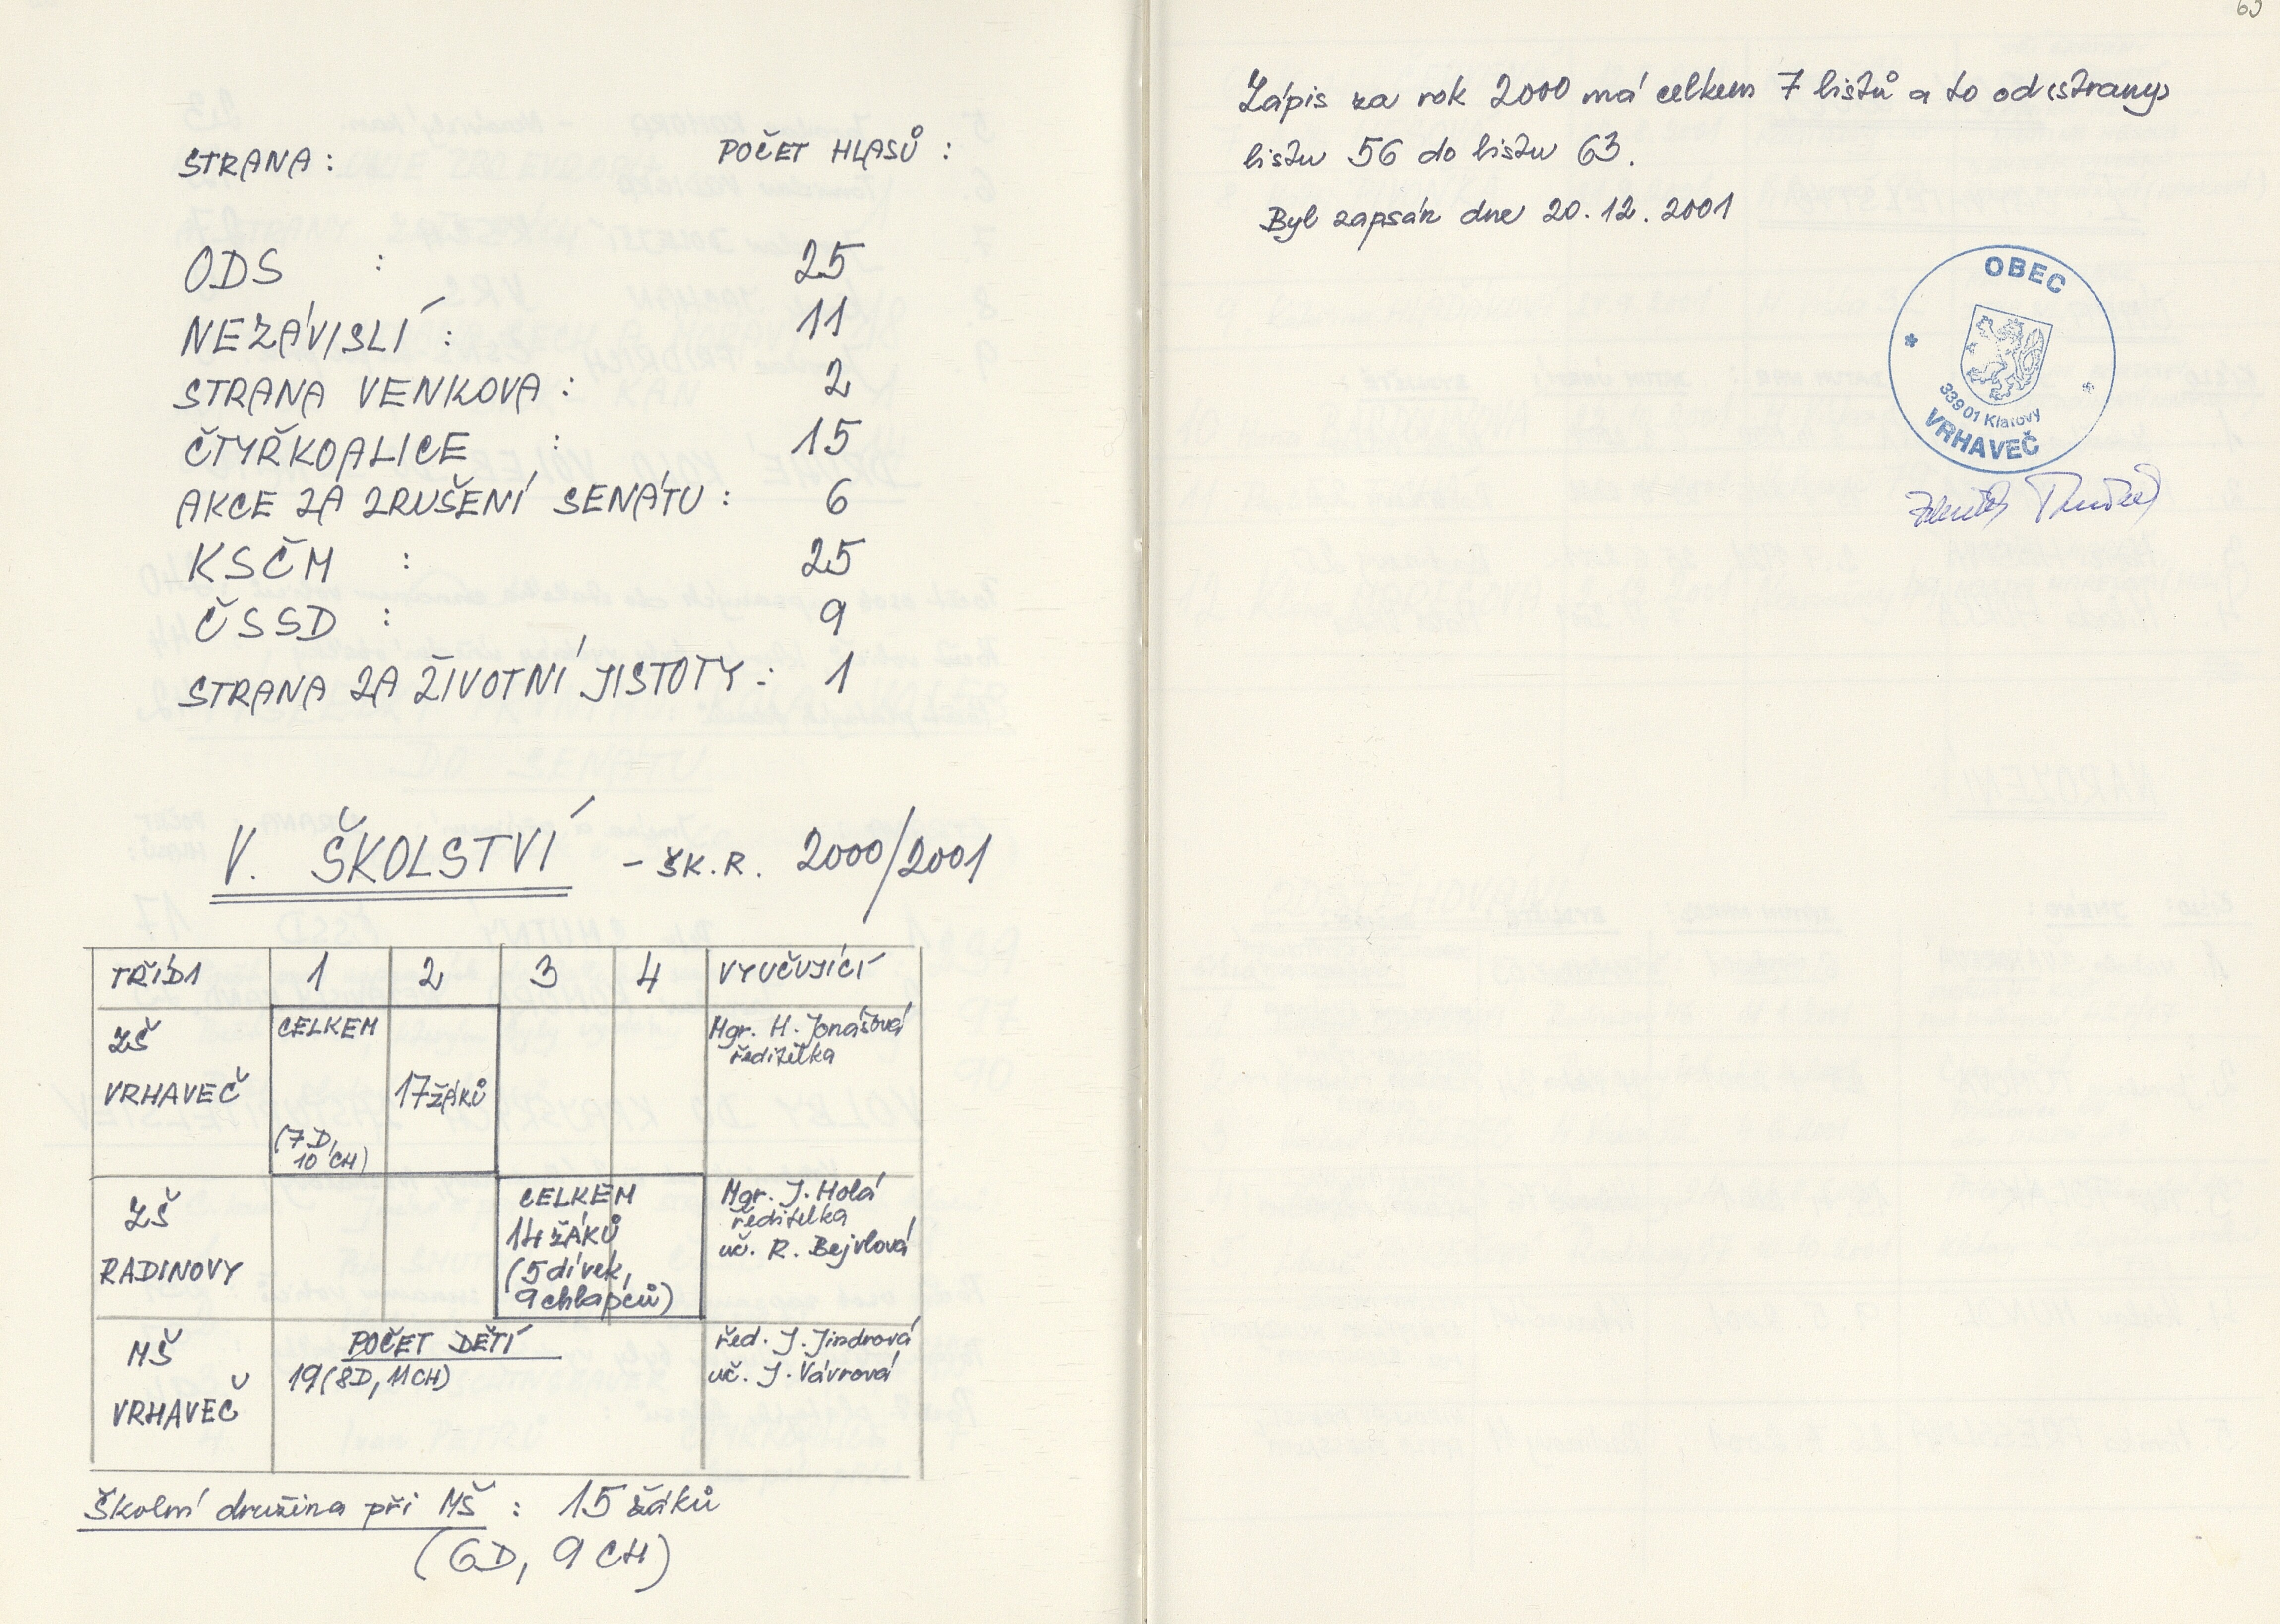 STRANA: POČET HLASŮ:
ODS : 25
NEZÁVISLÍ : 11
STRANA VENKOVA : 2
ČTYŘKOALICE : 15
AKCE ZA ZRUŠENÍ SENÁTU : 6
KSČM : 25
ČSSD : 9
STRANA ZA ŽIVOTNÍ JISTOTY : 1
V. ŠKOLSTVÍ - ŠK.R. 2000/2001
TŘÍDY 1 2 3 4 VYUČUJÍCÍ
ZŠ
VRHAVEČ
CELKEM
17 ŽÁKŮ
(7 D,
10 CH)
Mgr. H. Jonášová
ředitelka
ZŠ
RADINOVY
CELKEM
14 ŽÁKŮ
(5 dívek,
9 chlapců)
Mgr. J. Holá
ředitelka
uč. R. Bejvlová
MŠ
VRHAVEČ
POČET DĚTÍ
19 (8D, 11CH)
řed. J. Jindrová
uč. J. Vávrová
Školní družina při MŠ : 15 žáků
(6D, 9 CH)
63
Zápis za rok 2000 má celkem 7 listů a to od (strany)
listu 56 do listu 63.
Byl zapsán dne 20.12.2001
OBEC
339 01 Klatovy
VRHAVEČ